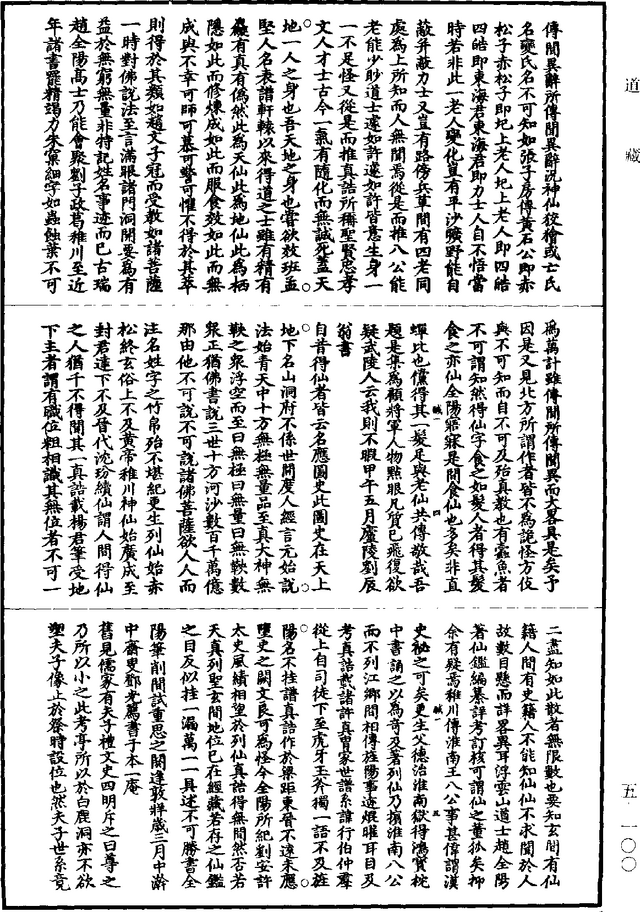 道藏
五—一〇〇
傳聞異辭所傳聞異辭況神仙狡獪或亡氏
名變氏名不可知如張子房傳黃石公即赤
松子赤松子即圯上老人圯上老人即四皓
四皓即東海君東海君即力士人自不悟當
時若非此一老人變化豈有平沙曠野能自
蔽并蔽力士又豈有路傍兵草間有四老同
處為上所知而人無聞焉從是而推八公能
老能少眇道士遽如許遽如許皆意生身一
一不足怪又從是而推真誥所稱聖賢忠孝
文人才士古今一氣有隨化而無誠死蓋天
地一人之身也吾天地之身也嘗欲效班孟
堅人名表譜軒轅以來得道之士雖有精有
麤有真有偽然此為天仙此為地仙此為栖
隱如此而修煉成如此而服食效如此而無
成與不幸可師可慕可警可懼不得於其萃
則得於其類如趙文子冠而受教如諸菩薩
一時對佛說法至言滿眼諸門洞開要為有
益於無窮無量非特記姓名事迹而已古瑞
趙全陽高士乃能會聚劉子政葛稚川至近
年諸書罷精竭力朱藁細字如蟲蝕葉不可
為萬計雖傳聞所傳聞異而大畧具是矣予
因是又見北方所謂作者皆不為詭怪方伎
與不可知而自不可及殆真教也有蠹魚者
不可謂知然得仙字食之如髮人者得其髮
食之亦仙全陽寤寐是間食仙也多矣非直
蟬比也儻得其一髮足與老仙共傳敬哉吾
題是集為顧將軍人物點眼凡質已飛復欲
疑武陵人云我則不暇甲午五月廬陵劉辰
翁書
自昔得仙者皆云名應圖史此圖史在天上
地下名山洞府不係世間度人經言元始說
法始青天中十方無極無量品至真大神無
鞅之衆浮空而至曰無極曰無量曰無鞅數
衆正猶佛書說三世十方河沙數百千萬億
那由他不可說不可說諸佛菩薩欲人人而
注名姓字之竹帛殆不堪紀更生列仙始赤
松終玄俗上不及黃帝稚川神仙始廣成至
封君達下不及晉代沈玢續仙謂人間得仙
之人猶千不得聞其一真誥載楊君筆受地
下主者謂有職位粗相識其無位者不可一
二盡知如此散者無限數也要知玄間有仙
籍人間有史籍人不能知仙仙不求聞於人
故數日懸而詳畧異耳浮雲山道士趙全陽
著仙鑑編纂詳考訂核可謂仙之董狐矣抑
余有疑焉稚川傳淮南王八公事甚偉謂漢
史秘之可矣更生父德治淮南獄得鴻寶枕
中書誦之以為奇及著列仙乃擯淮南八公
而不列江鄉間相傳旌陽事迹焜耀耳目及
考真誥敘諸許真胄家世譜系諱行伯仲羣
從上自司徒下至虎牙玉斧獨一語不及旌
陽名不挂譜真誥作於梁距東晉不遠未應
墮史之闕文良可為怪今全陽所紀劉安許
太史風績相望於列仙真誥得無間然否若
天真列聖玄間地位已在經藏若存之仙鑑
之目反似挂一漏萬一一具述不可勝書全
陽筆削間試重思之閼逢敦牂歲三月中澣
中齋叟鄧光薦書于本一庵
舊見儒家有夫子禮文史四明斥之曰尊之
乃所以小之此考亭所以於白鹿洞亦不欲
塑夫子像止於祭時設位也然夫子世系竟